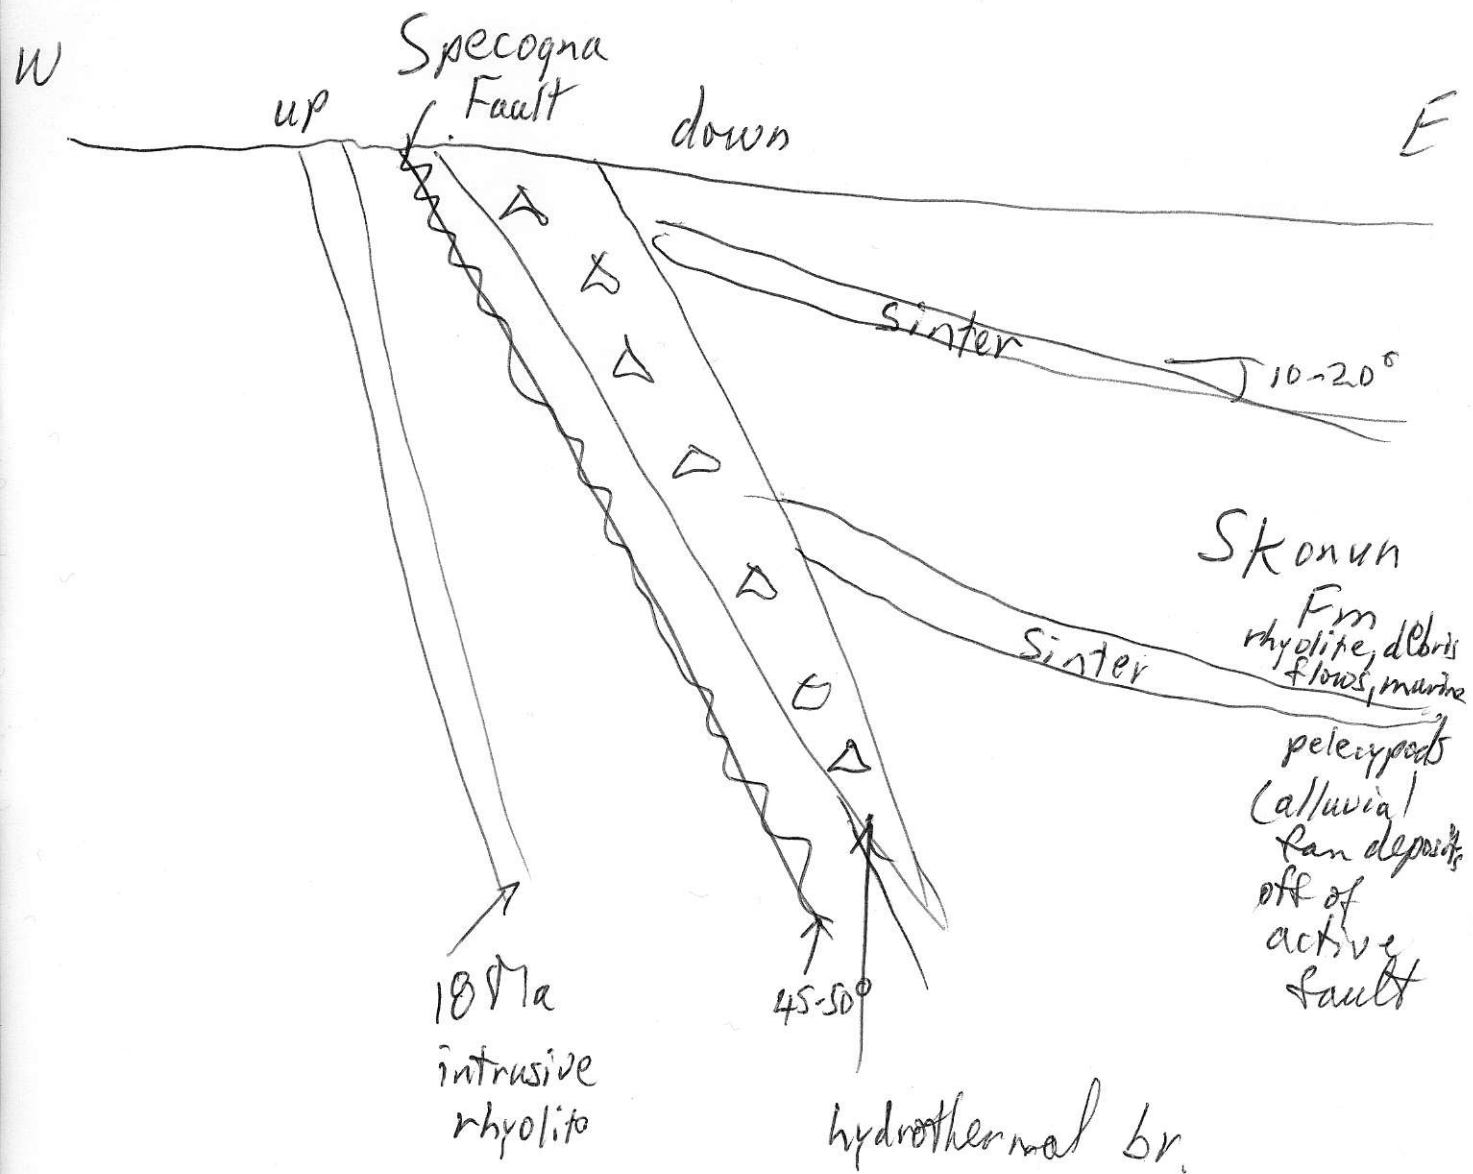 W
Specogna
Fault
up
down
E
Sinter
10-20°
Skonun
Fm
rhyolite, debris
flows, marine
Sinter
pelecypods
(alluvial
fan deposits
off of
active
fault
18 Ma
intrusive
rhyolite
45-50°
hydrothermal br.